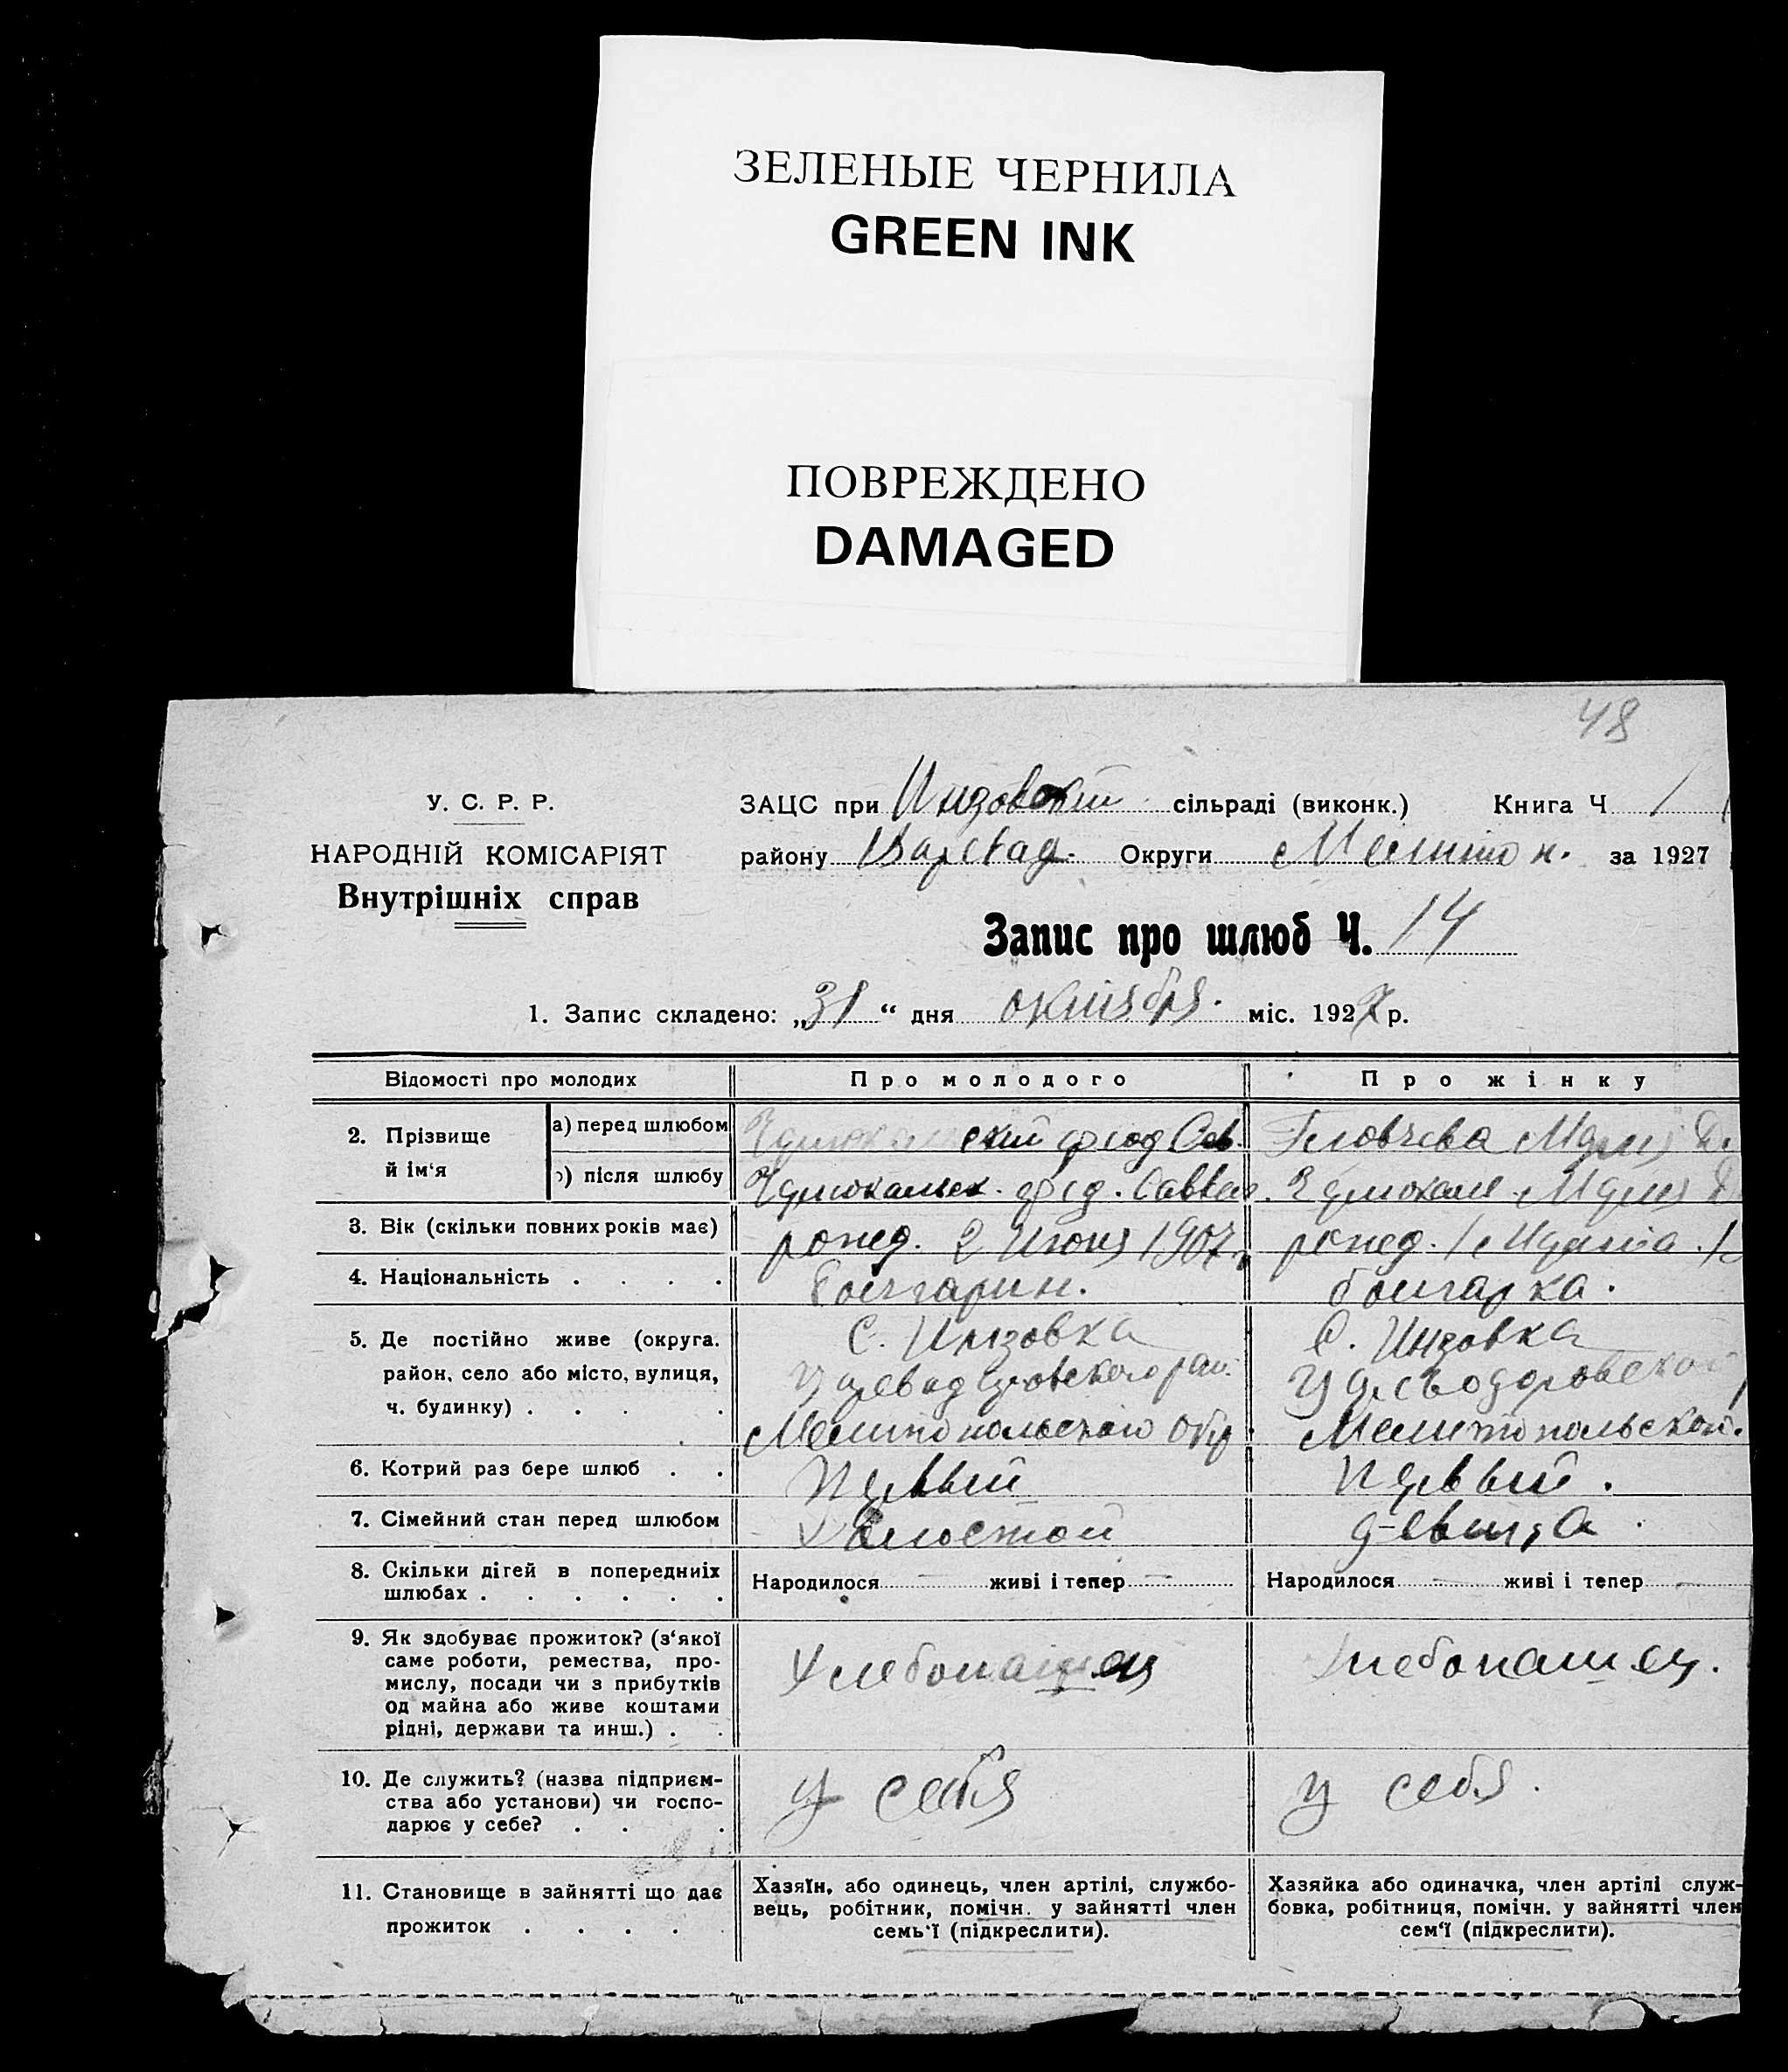 ЗЕЛЕНЫЕ ЧЕРНИЛА
GREEN INK
ПОВРЕЖДЕНО
DAMAGED
48
У. С. Р. Р.
НАРОДНІЙ КОМІСАРІЯТ
Внутрішніх справ
ЗАЦС при Инзовской сільраді (виконк.) Книга Ч 1
району Округи Мелитоп. за 1927
Запис про шлюб Ч. 14
1. Запис складено: „31“ дня октября. міс. 1927 р.
Відомості про молодих Про молодого Про жінку
2. Прізвище й ім‘я
а) перед шлюбом
б) після шлюбу
3. Вік (скільки повних років має) рожд. 2 Июня 1907 г рожд. 1 Марта
4. Національність . . . . болгарин. болгарка.
5. Де постійно живе (округа. С. Инзовка С. Инзовка
район, село або місто, вулиця,
ч. будинку) . . . . Мелитопольского Окр. Мелитопольской.
6. Котрий раз бере шлюб . . Первый Первый.
7. Сімейний стан перед шлюбом Холостой девица.
8. Скільки дігей в попередниіх Народилося — живі і тепер — Народилося — живі і тепер —
шлюбах . . . . . .
9. Як здобуває прожиток? (з‘якої Хлебопашец Хлебопашец.
саме роботи, ремества, про-
мислу, посади чи з прибутків
од майна або живе коштами
рідні, держави та инш.) . .
10. Де служить? (назва підприєм- у себя у себя.
ства або установи) чи госпо-
дарює у себе? . . .
11. Становище в зайнятті що дає
прожиток . . . . .
Хазяїн, або одинець, член артілі, службо-
вець, робітник, помічн. у зайнятті член
семь‘ї (підкреслити).
Хазяйка або одиначка, член артілі служ-
бовка, робітниця, помічн. у зайнятті член
сем‘ї (підкреслити).